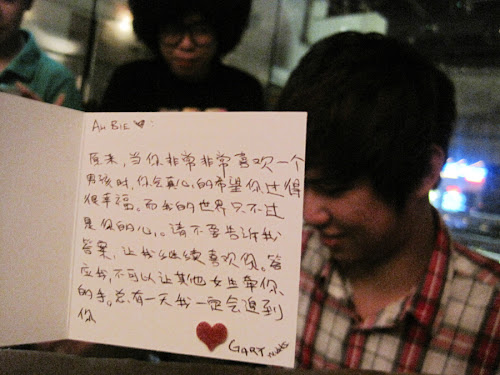 AH BIE ♥:
原来,当你非常非常喜欢一个
男孩时,你会真心的希望你过得
很幸福。而我的世界只不过
是你的心。请不要告诉我
答案,让我继续喜欢你。答
应我,不可以让其他女生牵你
的手。总有一天我一定会追到
你
GARY